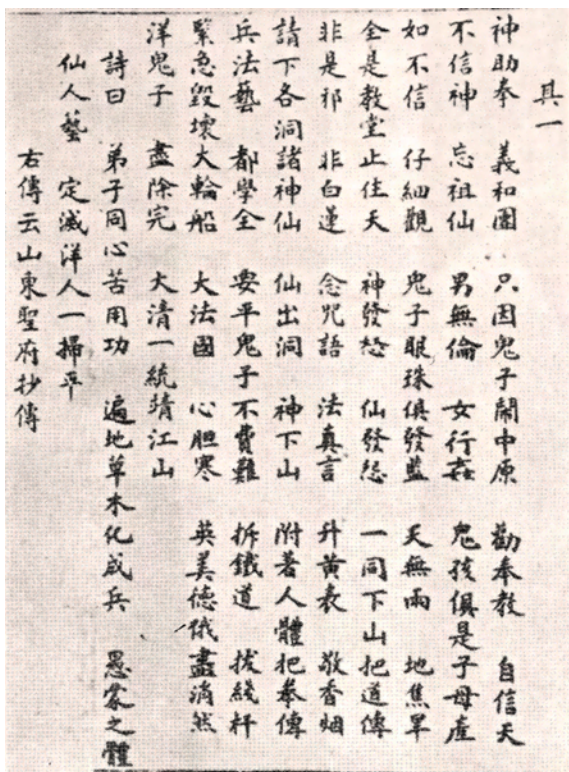 其一
神助拳 義和團 只因鬼子鬧中原 勸奉教 自信天
不信神 忘祖仙 男無倫 女行姦 鬼孩俱是子母產
如不信 仔細觀 鬼子眼珠俱發監 天無雨 地焦旱
全是教堂止住天 神發怒 仙發怨 一同下山把道傳
非是邪 非白蓮 念咒語 法真言 升黃表 敬香烟
請下各洞諸神仙 仙出洞 神下山 附著人體把拳傳
兵法藝 都學全 要平鬼子不費難 拆鐵道 拔綫杆
緊急毀壞大輪船 大法國 心胆寒 英美德俄盡消然
洋鬼子 盡除完 大清一統靖江山
詩曰 弟子同心苦用功 遍地草木化成兵 愚蒙之體
仙人藝 定滅洋人一掃平
右傳云山東聖府抄傳